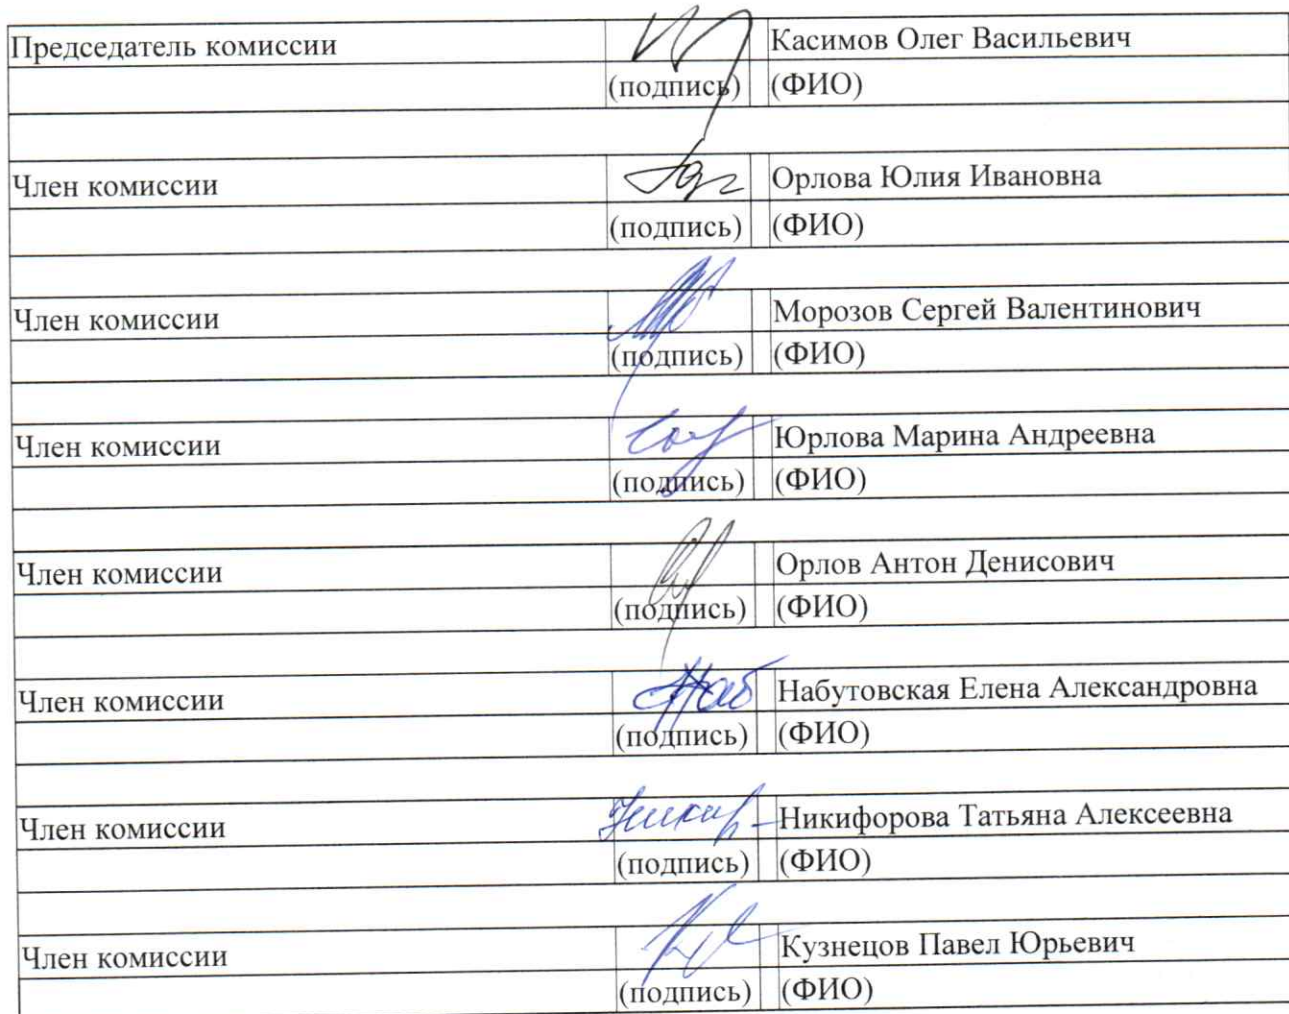 Председатель комиссии Касимов Олег Васильевич
(подпись) (ФИО)
Член комиссии Орлова Юлия Ивановна
(подпись) (ФИО)
Член комиссии Морозов Сергей Валентинович
(подпись) (ФИО)
Член комиссии Юрлова Марина Андреевна
(подпись) (ФИО)
Член комиссии Орлов Антон Денисович
(подпись) (ФИО)
Член комиссии Набутовская Елена Александровна
(подпись) (ФИО)
Член комиссии Никифорова Татьяна Алексеевна
(подпись) (ФИО)
Член комиссии Кузнецов Павел Юрьевич
(подпись) (ФИО)